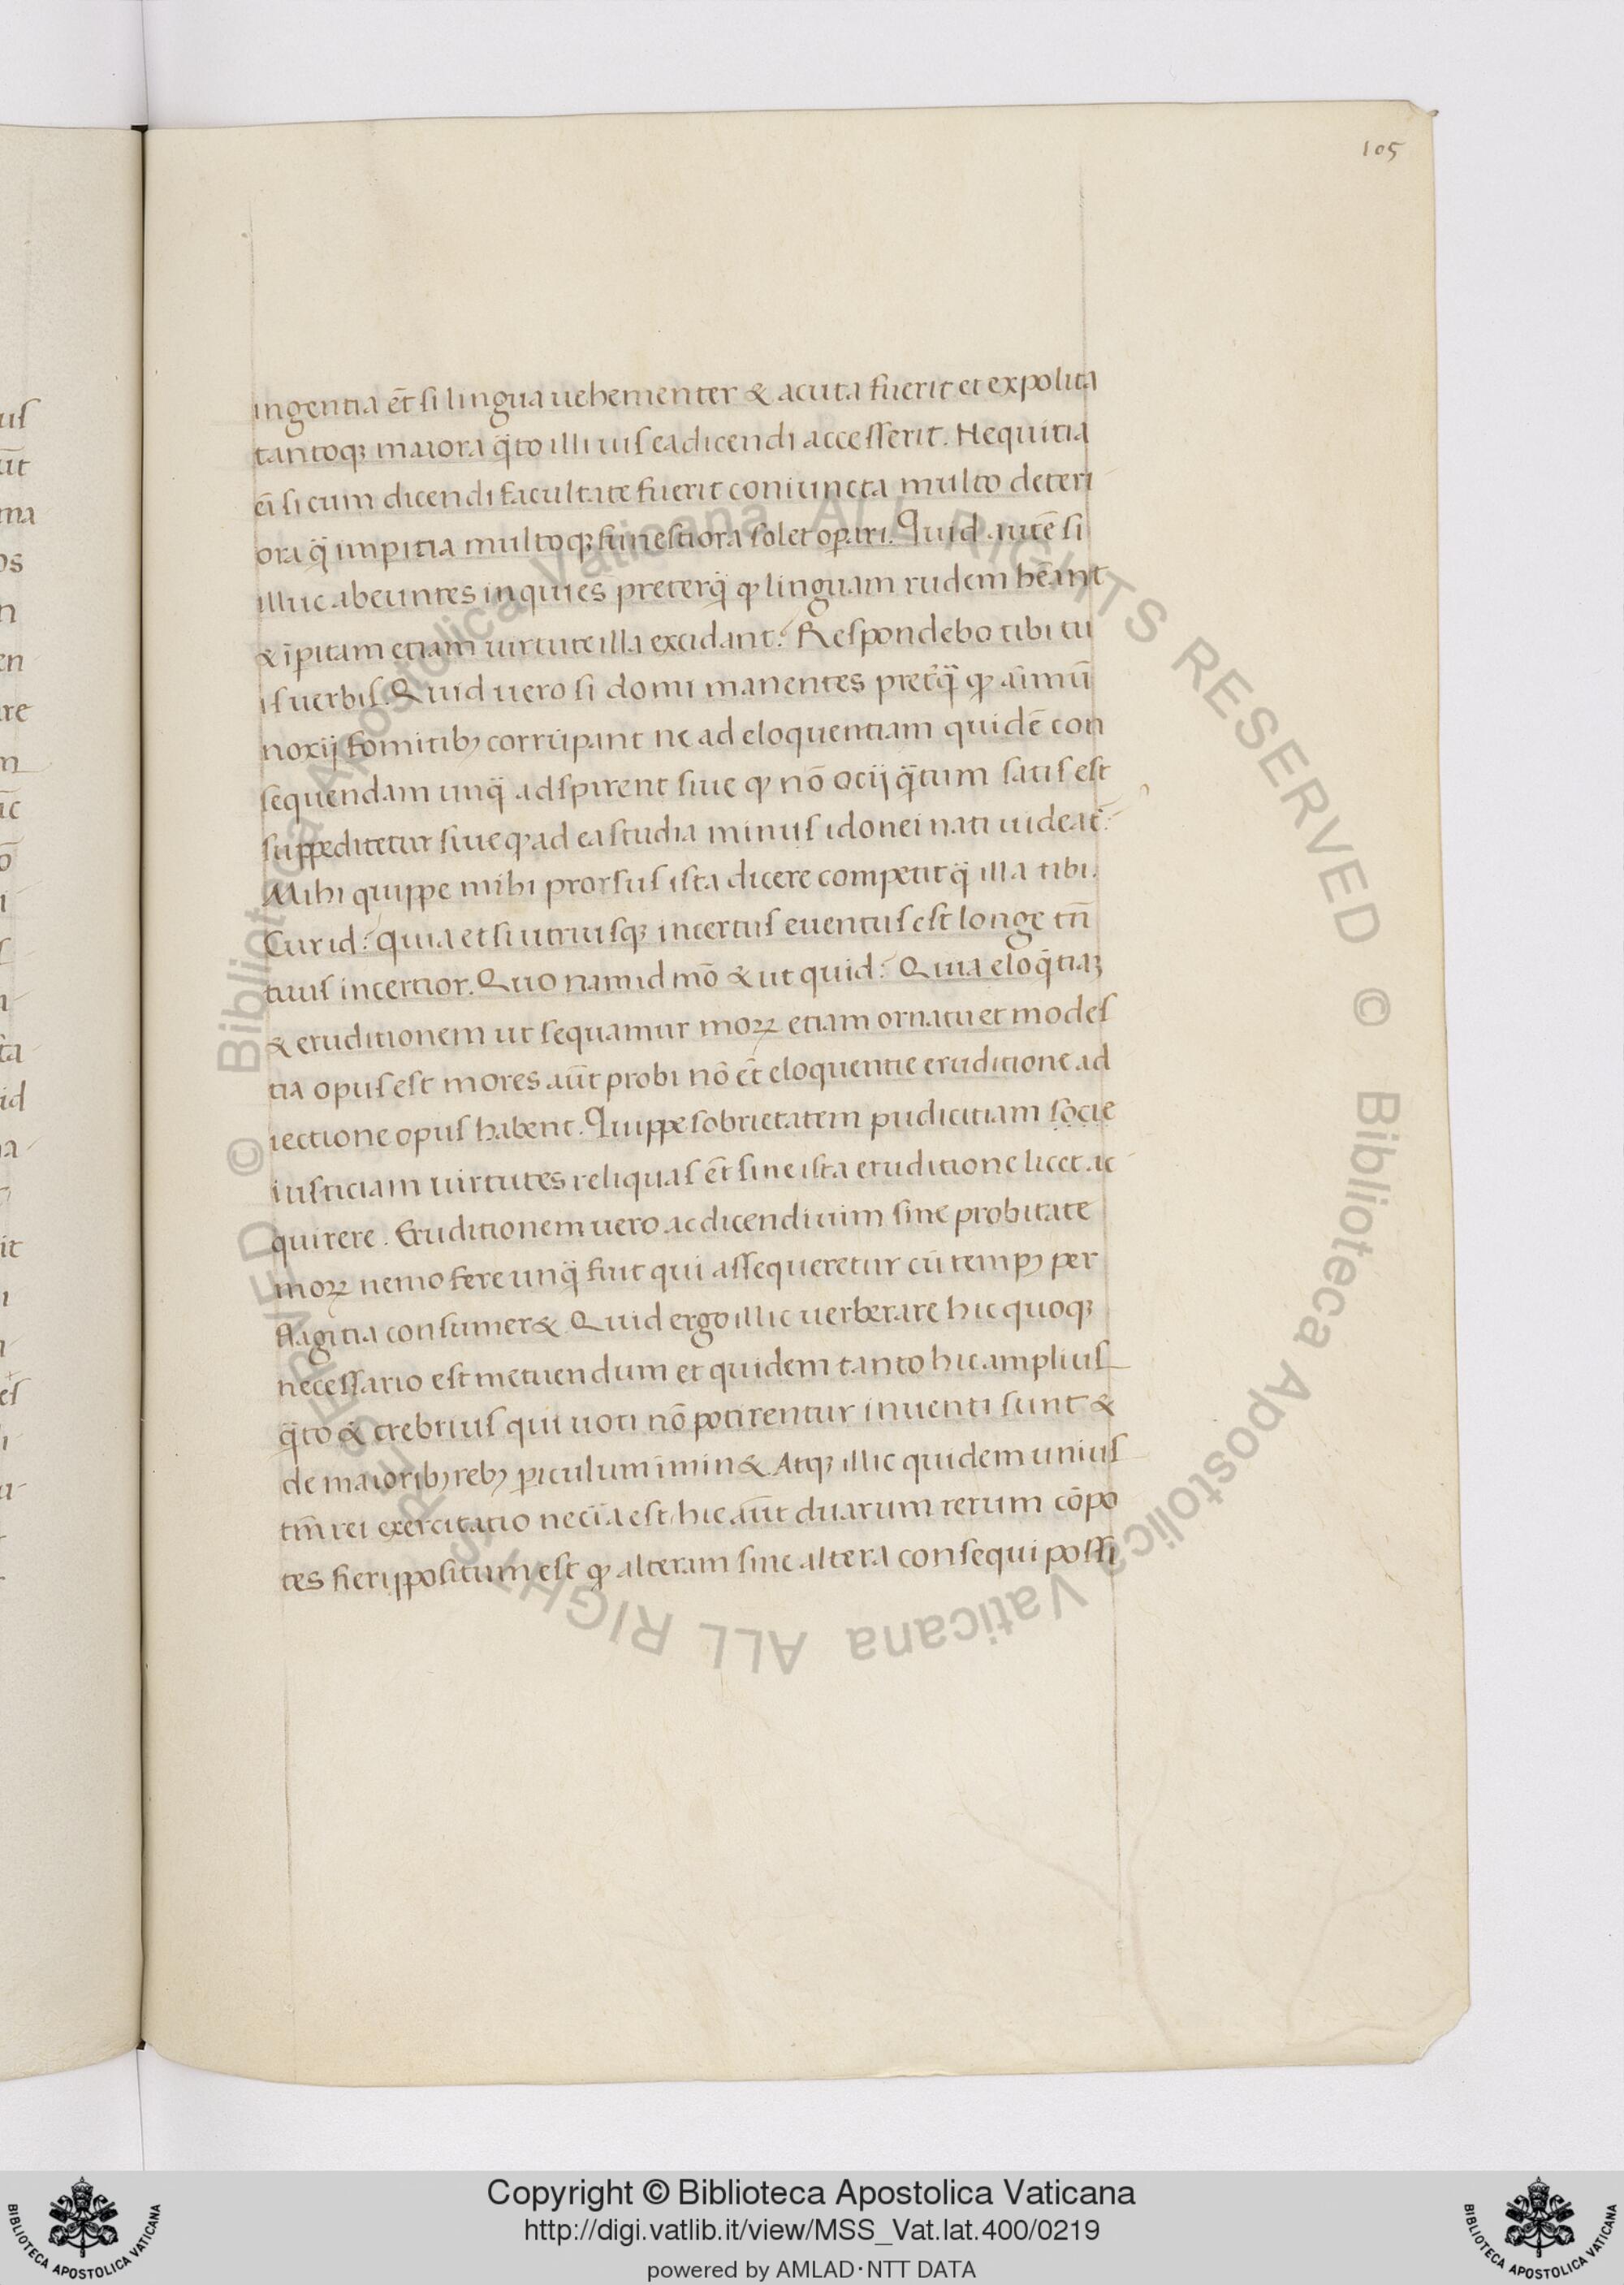 105
ingentia et̄ si lingua uehementer & acuta fuerit et expolita
tantoqꝫ maiora q̄to illi uis ea dicendi accesserit. Nequitia
ei̅ si cum dicendi facultate fuerit coniuncta multo deteri
ora q̄ imp̱itia multoqꝫ funestiora solet op̱ari. Quid aute̅ si
illuc abeuntes inquies preterq̄ ꝙ linguam rudem hēant
& ī̱pitam etiam uirtute illa excidant? Respondebo tibi tu
is uerbis. Quid uero si domi manentes pret̄q̄ ꝙ aı̅mu̅
noxij fomitibꝫ corru̅pant ne ad eloquentiam quide̅ con
sequendam unq̄ adspirent siue ꝙ no̅ ocij q̄tum satis est
suppeditetur siue ꝙ ad ea studia minus idonei nati uideat̄?
Mihi quippe mihi prorsus ista dicere competit q̄ illa tibi.
Cur id? quia et si utriusqꝫ incertus euentus est longe tn̅
tuus incertior. Quo nam id mo̅ & ut quid? Quia eloq̄tiaꝫ
& eruditionem ut sequamur moꝝ etiam ornatu et modes
tia opus est mores aut̅ probi no̅ et̄ eloquentie eruditione ad
iectione opus habent. Quippe sobrietatem pudicitiam socie
iusticiam uirtutes reliquas et̄ sine ista eruditione licet ac
quirere. Eruditionem uero ac dicendi uim sine probitate
moꝝ nemo fere unq̄ fuit qui assequeretur cu̅ tempꝫ per
flagitia consumer&. Quid ergo illic uerberare hic quoqꝫ
necessario est metuendum et quidem tanto hic amplius
q̄to & crebrius qui uoti no̅ potirentur inuenti sunt &
de maioribꝫ rebꝫ ꝑiculum i̅min&. Atqꝫ illic quidem unius
tm̅ rei exercitatio nec̄ia est hic aut̅ duarum rerum co̅po
tes fieri ꝓpositum est ꝙ alteram sine altera consequi possi
us
ut̅
ma
os
n
en
re
m
ic̅
o̅
ta
id
it
es
© Biblioteca Apostolica Vaticana ALL RIGHTS RESERVED © Biblioteca Apostolica Vaticana ALL RIGHTS RESERVED
Copyright © Biblioteca Apostolica Vaticana
http://digi.vatlib.it/view/MSS_Vat.lat.400/0219
powered by AMLAD·NTT DATA
BIBLIOTECA APOSTOLICA VATICANA
BIBLIOTECA APOSTOLICA VATICANA